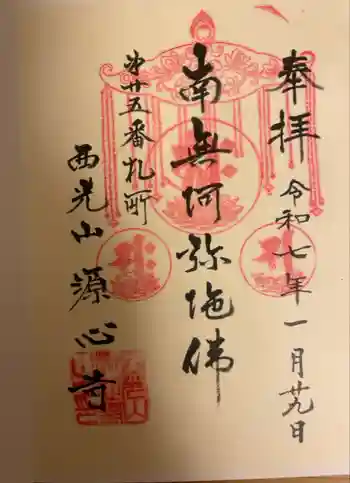 奉拝
令和七年一月廿九日
南無阿弥陀佛
第廿五番札所
西光山 源心寺